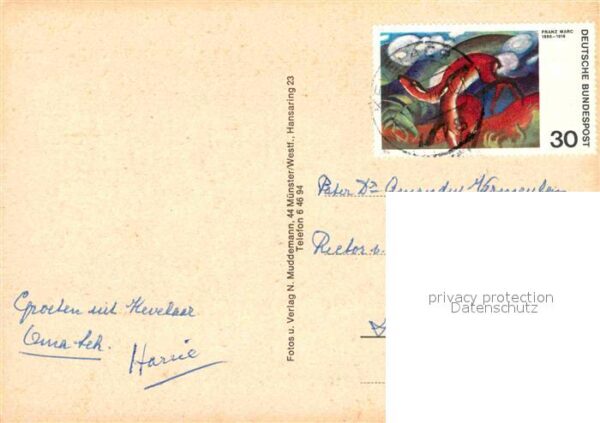 FRANZ MARC
DEUTSCHE BUNDESPOST
30
Fotos u. Verlag N. Muddemann, 44 Münster/Westf., Hansaring 23
Telefon 6 46 94
Pater Dr.
Rector
privacy protection
Datenschutz
Groeten uit Kevelaer
Oma
Harrie